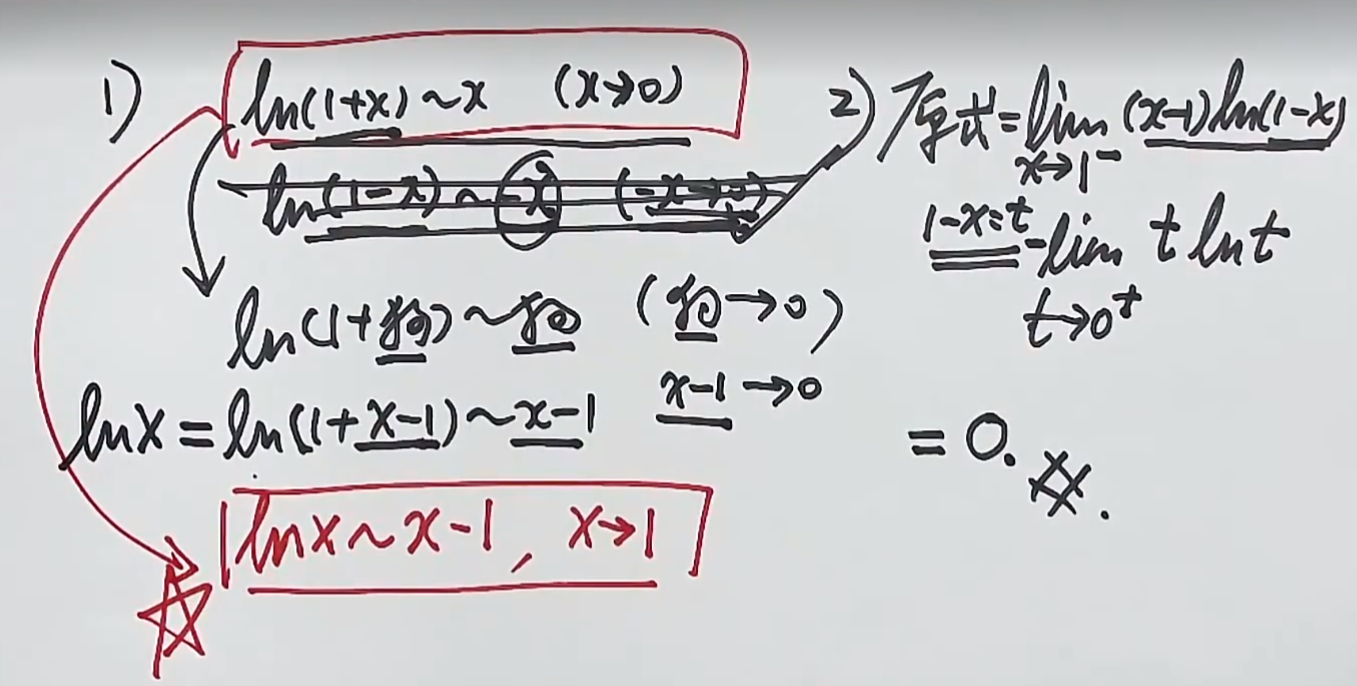 1)
ln(1+x)~x (x→0)
ln(1-x)~-x (-x→0)
ln(1+狗)~狗 (狗→0)
lnx=ln(1+x-1)~x-1 x-1→0
lnx~x-1, x→1
2) 原式=lim (x-1)ln(1-x)
x→1⁻
1-x=t
-lim t ln t
t→0⁺
=0.